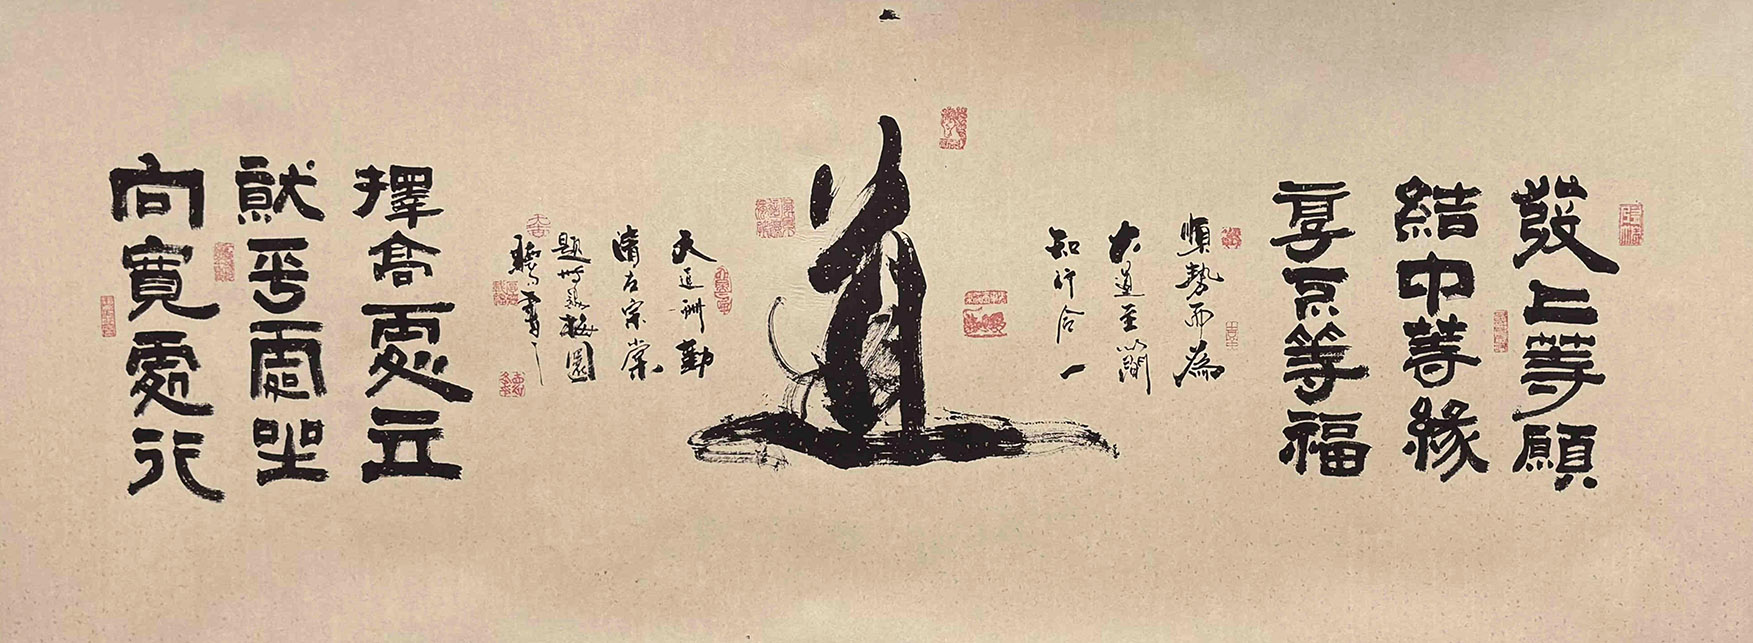 發上等願
結中等緣
享下等福
順勢而為
大道至簡
知行合一
道
天道酬勤
清左宗棠
題梅園
書
擇高處立
就平處坐
向寬處行